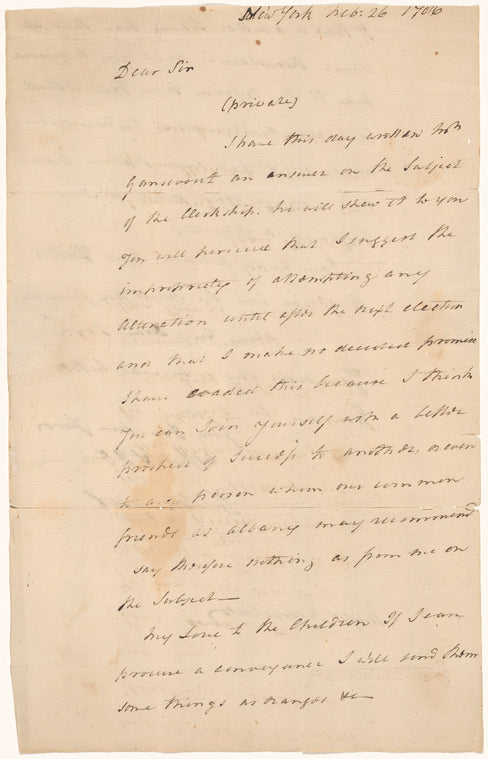 New York Feb: 26 1706
Dear Sir
(private)
I have this day written with
Gansevoort an answer on the Subject
of the Clerkship. he will shew it to you
You will perceive that I suggest the
impropriety of attempting any
alteration until after the next election
and that I make no decided promise
I have evaded this because I think
you can Join Yourself with a better
prospect of Success to another, or even
to any person whom our common
friends at albany may recommend
Say therefore nothing as from me on
the Subject—
My Love to the Children If I can
procure a conveyance I will send them
some things as oranges &c—